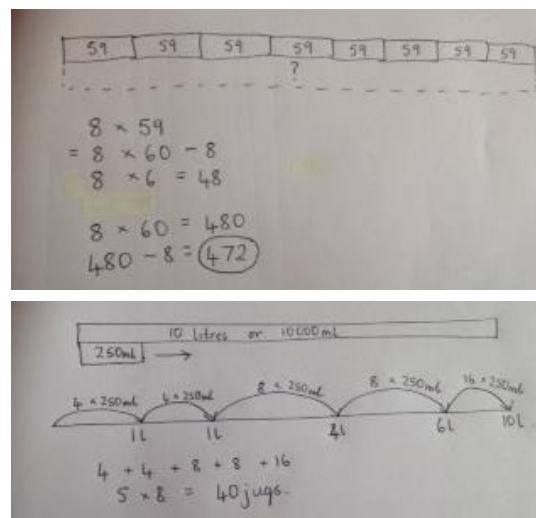 59 59 59 59 59 59 59 59
?
8 × 59
= 8 × 60 - 8
8 × 6 = 48
8 × 60 = 480
480 - 8 = 472
10 litres or 10000ml
250ml
4 × 250ml 4 × 250ml 8 × 250ml 8 × 250ml 16 × 250ml
1L 1L 4L 6L 10L
4 + 4 + 8 + 8 + 16
5 × 8 = 40 jugs.